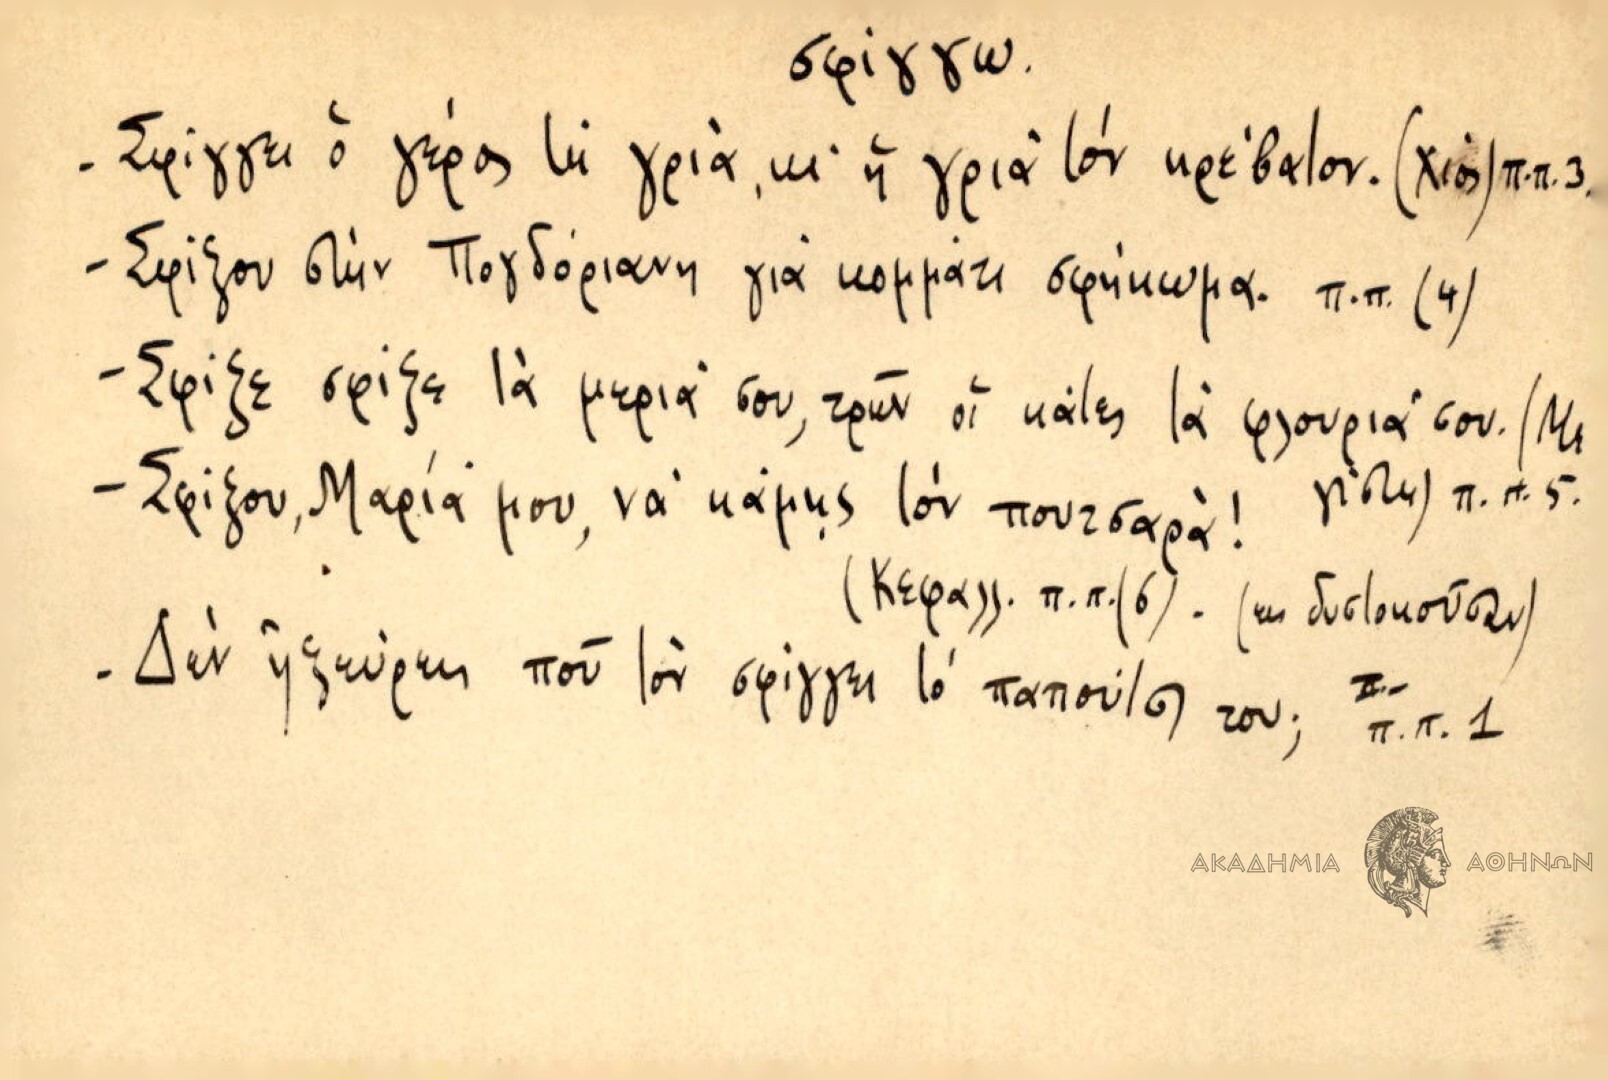 σφίγγω.
- Σφίγγει ὁ γέρος τὴ γριά, κι' ἡ γριά τόν κρεβατον. (Χίος) π.π. 3.
- Σφίξου στὴν Πογδόριανη γιά κομμάτι σφήκωμα. π.π. (4)
- Σφίξε σφίξε τὰ μεριά σου, τρῶν οἱ κάτες τὰ φλουριά σου. (Με
γίστη) π.π. 5.
- Σφίξου, Μαρία μου, νά κάμῃς τόν πουτσαρὰ!
(Κεφαλλ. π.π. (6). (εἰς δυστοκοῦσαν)
- Δὲν ἠξεύρεις ποῦ τὸν σφίγγει τό παπούτσι του; π.π. 1
ΑΚΑΔΗΜΙΑ ΑΘΗΝΩΝ